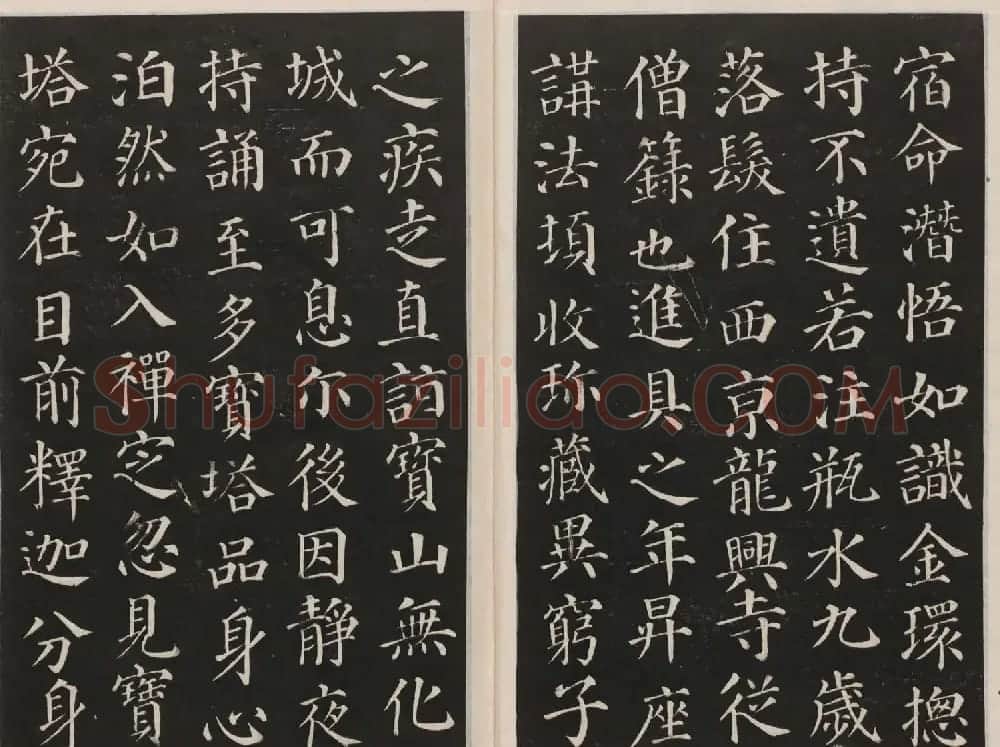 宿命潛悟如識金環揔
持不遺若注瓶水九歲
落髮住西京龍興寺從
僧籙也進具之年昇座
講法頃收珎藏異窮子
之疾走直訪寶山無化
城而可息尔後因靜夜
持誦至多寶塔品身心
泊然如入禪定忽見寶
塔宛在目前釋迦分身
Shufaziliao.COM